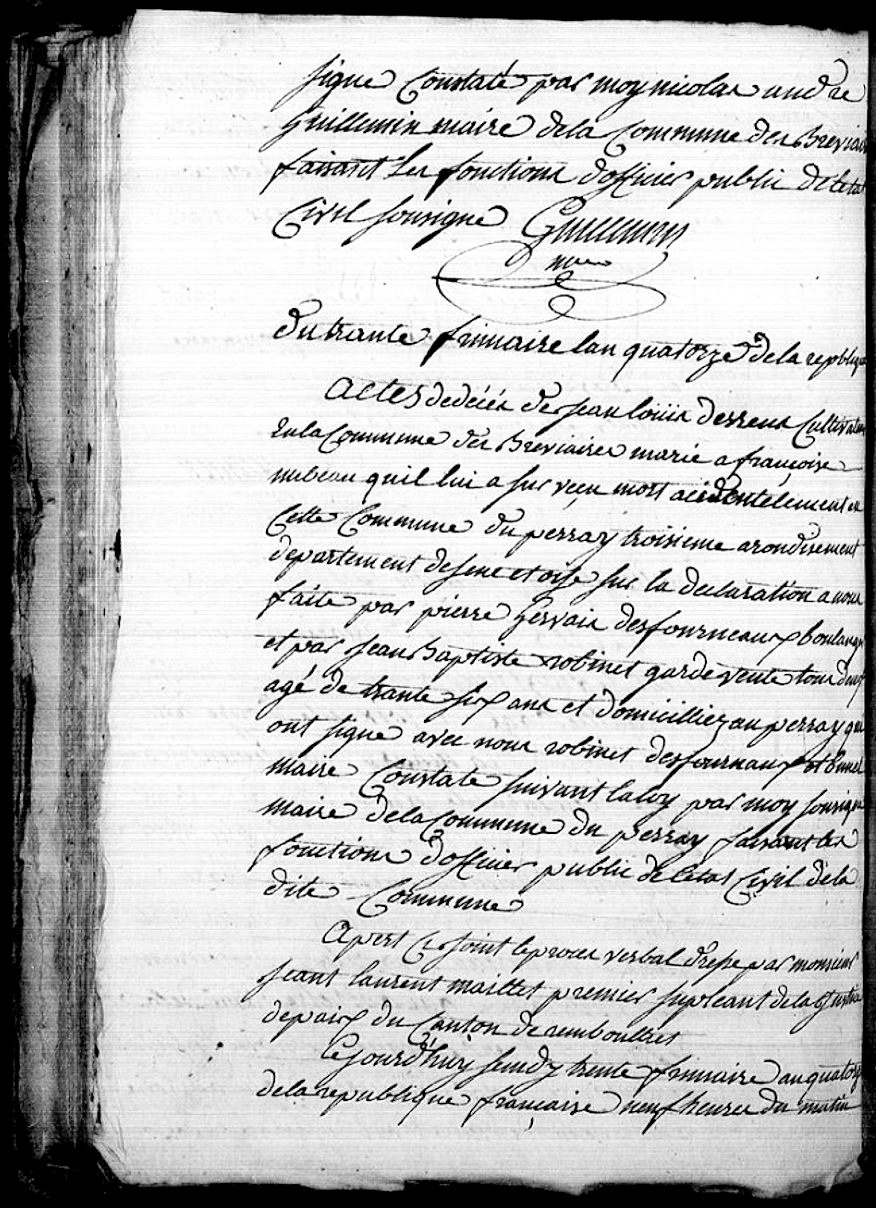 signe Constaté par moy nicolas andre
Guillemin maire dela Commune des Breviair
faisant Les fonctions dofficier public deletat
Civil sousigne Guillemin
maire
du trante frimaire lan quatorze dela republique
Actes dedécés de Jean louis desreux Cultivateur
En la Commune des Breviaires marié a françoise
nubeau quil lui a sur veçu mort acidentelement en
Cette Commune du perray troisieme arondisement
departement desene et oise sur la declaration a nous
faite par pierre Gervais desfourneaux boulanger
et par Jean Baptiste robinet garde vente tous deux
agé de trante six ans et domicilliez au perray qui
ont signe avec nous robinet desfournaux et
maire Constate suivant laloy par moy sousigne
maire dela Commune du perray faisant les
fonctions dofficier public de letat Civil dela
dite Commune
Apert Cy Joint le proces verbal dresse par monsieur
Jeant laurent maillet premier supleant dela Justice
depaix du Canton de remboulliet
Cejourdhuy trente frimaire an quatorze
dela republique française neuf heures du matin